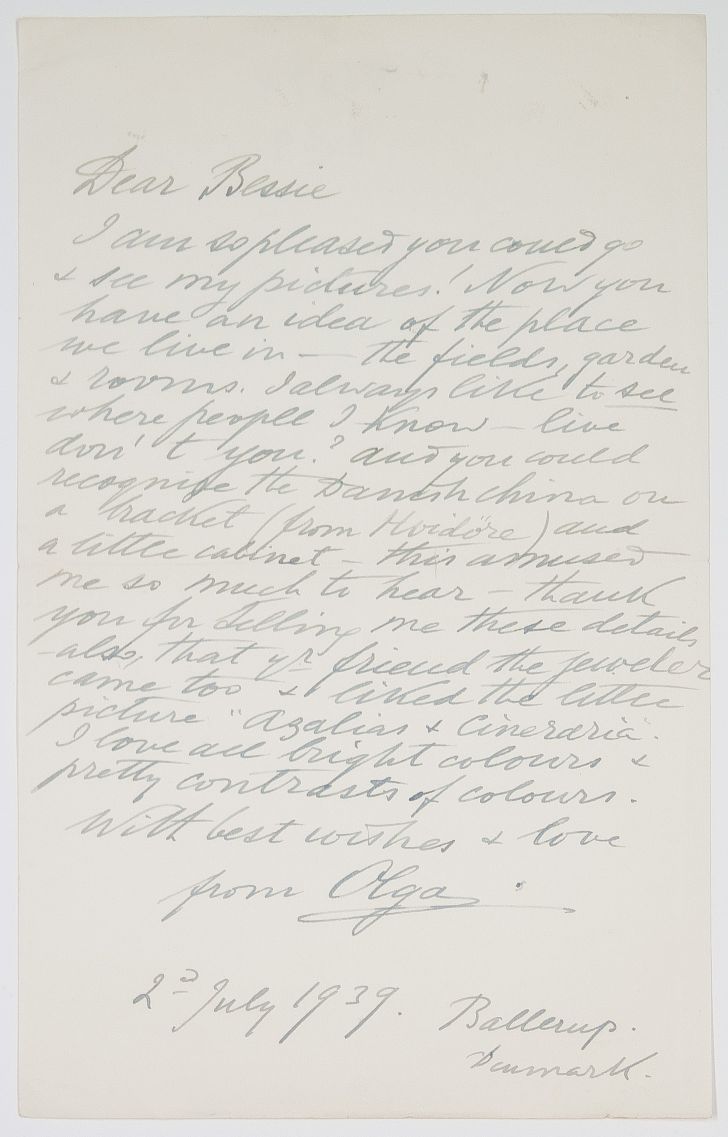 Dear Bessie
I am so pleased you could go
& see my pictures! Now you
have an idea of the place
we live in — the fields, garden
& rooms. I always like to see
where people I know — live
don't you? and you could
recognise the Danish china on
a bracket (from Hvidöre) and
a little cabinet — this amused
me so much to hear — thank
you for telling me these details
also, that yr friend the jeweler
came too & liked the little
picture "Azalias & Cineraria".
I love all bright colours &
pretty contrasts of colours.
With best wishes & love
from Olga.
2d July 1939. Ballerup.
Denmark.